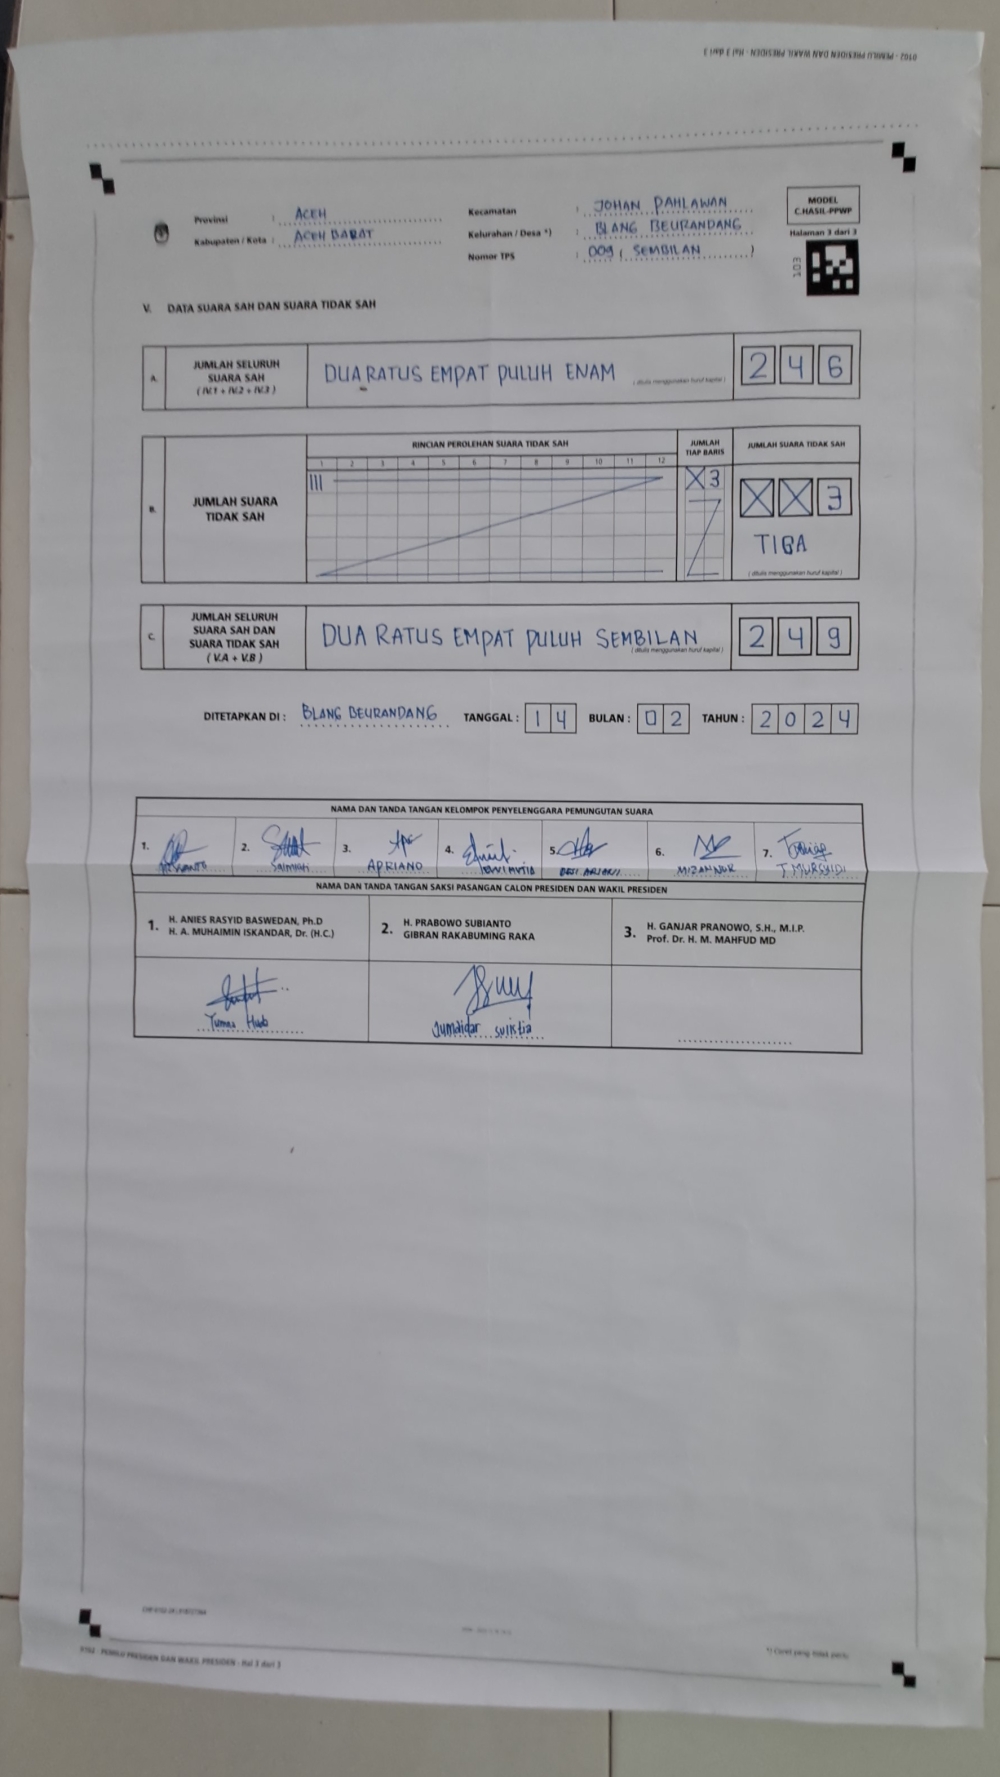 0102 - PEMILU PRESIDEN DAN WAKIL PRESIDEN - Hal 3 dari 3
Provinsi : ACEH
Kabupaten / Kota : ACEH BARAT
Kecamatan : JOHAN PAHLAWAN
Kelurahan / Desa *) : BLANG BEURANDANG
Nomor TPS : 009 ( SEMBILAN )
MODEL
C.HASIL-PPWP
Halaman 3 dari 3
103
V. DATA SUARA SAH DAN SUARA TIDAK SAH
A. JUMLAH SELURUH
SUARA SAH
( IV.1 + IV.2 + IV.3 )
DUA RATUS EMPAT PULUH ENAM
( ditulis menggunakan huruf kapital )
2 4 6
B. JUMLAH SUARA
TIDAK SAH
RINCIAN PEROLEHAN SUARA TIDAK SAH
1 2 3 4 5 6 7 8 9 10 11 12
III
JUMLAH
TIAP BARIS
X 3
JUMLAH SUARA TIDAK SAH
X X 3
TIGA
( ditulis menggunakan huruf kapital )
C. JUMLAH SELURUH
SUARA SAH DAN
SUARA TIDAK SAH
( V.A + V.B )
DUA RATUS EMPAT PULUH SEMBILAN
( ditulis menggunakan huruf kapital )
2 4 9
DITETAPKAN DI : BLANG BEURANDANG TANGGAL : 14 BULAN : 02 TAHUN : 2024
NAMA DAN TANDA TANGAN KELOMPOK PENYELENGGARA PEMUNGUTAN SUARA
1. 2. 3. 4. 5. 6. 7.
APRIANO MIZAN NUR T. MURSYIDI
NAMA DAN TANDA TANGAN SAKSI PASANGAN CALON PRESIDEN DAN WAKIL PRESIDEN
1. H. ANIES RASYID BASWEDAN, Ph.D
H. A. MUHAIMIN ISKANDAR, Dr. (H.C.)
2. H. PRABOWO SUBIANTO
GIBRAN RAKABUMING RAKA
3. H. GANJAR PRANOWO, S.H., M.I.P.
Prof. Dr. H. M. MAHFUD MD
*) Coret yang tidak perlu
0102 - PEMILU PRESIDEN DAN WAKIL PRESIDEN - Hal 3 dari 3